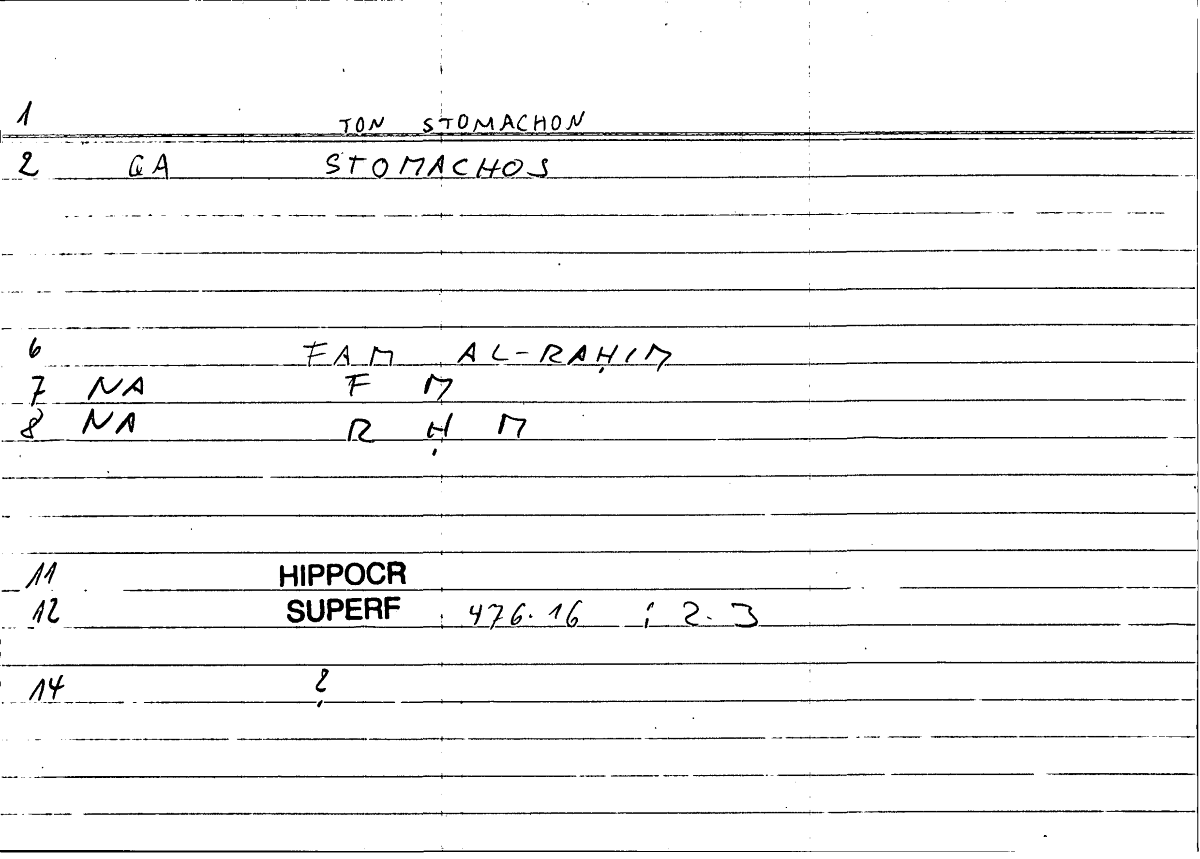 1 TON STOMACHON
2 GA STOMACHOS
6 FAM AL-RAḤIM
7 NA F M
8 NA R Ḥ M
11 HIPPOCR
12 SUPERF 476.16 ; 2.3
14 ?